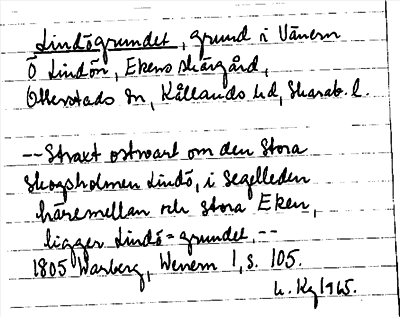 Lindögrundet, grund i Vänern
Ö Lindön, Ekens skärgård,
Otterstads sn, Kållands hd, Skarab. l.
-- Straxt ostwart om den Stora
Skogsholmen Lindö, i Segelleden
häremellan och Stora Eken,
ligger Lindö=grundet, --
1805 Warberg, Wenern 1, s. 105.
1965.